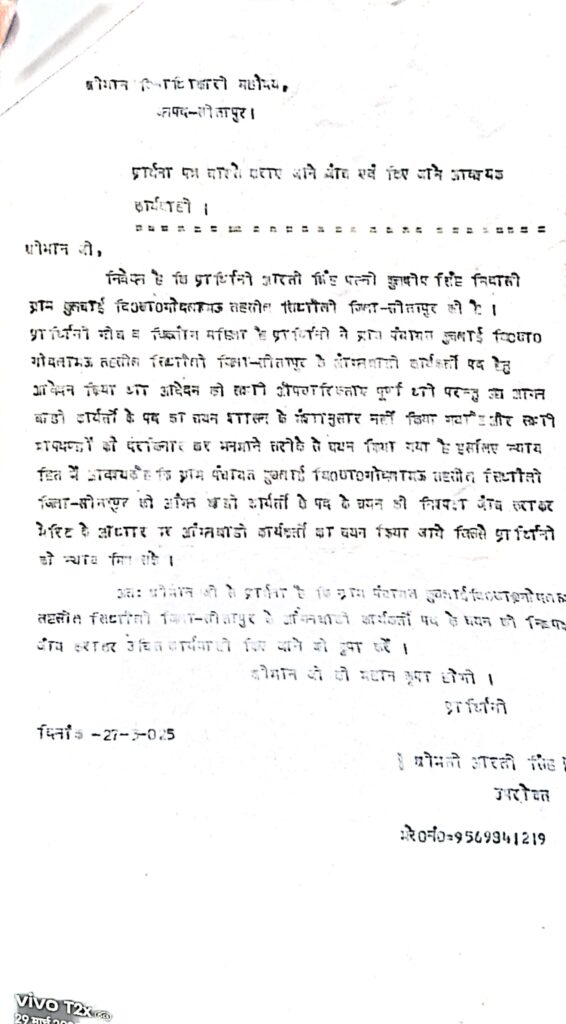 श्रीमान जिलाधिकारी महोदय,
जनपद-सीतापुर।
प्रार्थना पत्र वास्ते कराए जाने जांच एवं किए जाने आवश्यक
कार्यवाही ।
श्रीमान जी,
निवेदन है कि प्रार्थिनी आरती सिंह पत्नी कुलदीप सिंह निवासी
ग्राम वि०ख०गोंदलामऊ तहसील सिधौली जिला-सीतापुर की है ।
प्रार्थिनी गरीब व महिला है प्रार्थिनी ने ग्राम पंचायत वि०ख०
गोंदलामऊ तहसील सिधौली जिला-सीतापुर के आंगनबाडी कार्यकर्ती पद हेतु
आवेदन किया था आवेदन की सभी औपचारिकताएं पूर्ण थी परन्तु उस आंगन
बाडी कार्यर्ती के पद का चयन शासन के मंशानुसार नहीं किया गया है और सभी
मापदण्डों को दरकिनार कर मनमाने तरीके से चयन किया गया है इसलिए न्याय
हित में आवश्यक है कि ग्राम पंचायत वि०ख०गोंदलामऊ तहसील सिधौली
जिला-सीतापुर की आंगन बाडी कार्यर्ती के पद के चयन की निष्पक्ष जांच कराकर
मेरिट के आधार पर आंगनबाडी कार्यकर्ती का चयन किया जाये जिससे प्रार्थिनी
को न्याय मिल सके ।
अतः श्रीमान जी से प्रार्थना है कि ग्राम पंचायत वि०ख०गोंदलामऊ
तहसील सिधौली जिला-सीतापुर के आंगनबाडी कार्यकर्ती पद के चयन की निष्पक्ष
जांच कराकर उचित कार्यवाही किए जाने की कृपा करें ।
श्रीमान जी की महान कृपा होगी ।
प्रार्थिनी
दिनांक -27-3-025
श्रीमती आरती सिंह
उपरोक्त
मो०नं०=9569341219
vivo T2x
29 मार्च